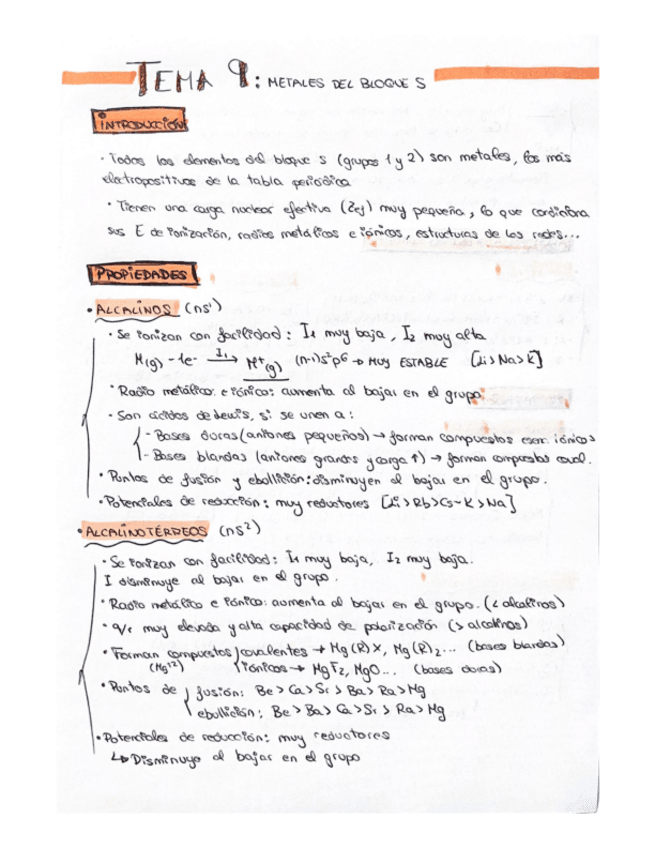 TEMA 9: METALES DEL BLOQUE S
INTRODUCCIÓN
· Todos los elementos del bloque s (grupos 1 y 2) son metales, los más
electropositivos de la tabla periódica
· Tienen una carga nuclear efectiva (Zef) muy pequeña, lo que condiciona
sus E de ionización, radios metálicos e iónicos, estructuras de las redes...
PROPIEDADES
• ALCALINOS (ns¹)
· Se ionizan con facilidad: I₁ muy baja, I₂ muy alta
M(g) - 1e- I₁→ M⁺(g) (n-1)s²p⁶ → MUY ESTABLE [Li>Na>K]
· Radio metálico e iónico: aumenta al bajar en el grupo.
· Son ácidos de Lewis, si se unen a:
- Bases duras (aniones pequeños) → forman compuestos esen. iónicos
- Bases blandas (aniones grandes y carga ↑) → forman compuestos coval.
· Puntos de fusión y ebullición: disminuyen al bajar en el grupo.
· Potenciales de reducción: muy reductores [Li>Rb>Cs~K>Na]
• ALCALINOTÉRREOS (ns²)
· Se ionizan con facilidad: I₁ muy baja, I₂ muy baja.
I disminuye al bajar en el grupo.
· Radio metálico e iónico: aumenta al bajar en el grupo. (< alcalinos)
· q/r muy elevada y alta capacidad de polarización (> alcalinos)
· Forman compuestos covalentes → Mg(R)X, Mg(R)₂... (bases blandas)
(Mg⁺²) iónicos → MgF₂, MgO... (bases duras)
· Puntos de fusión: Be > Ca > Sr > Ba > Ra > Mg
ebullición: Be > Ba > Ca > Sr > Ra > Mg
· Potenciales de reducción: muy reductores
↳ Disminuye al bajar en el grupo